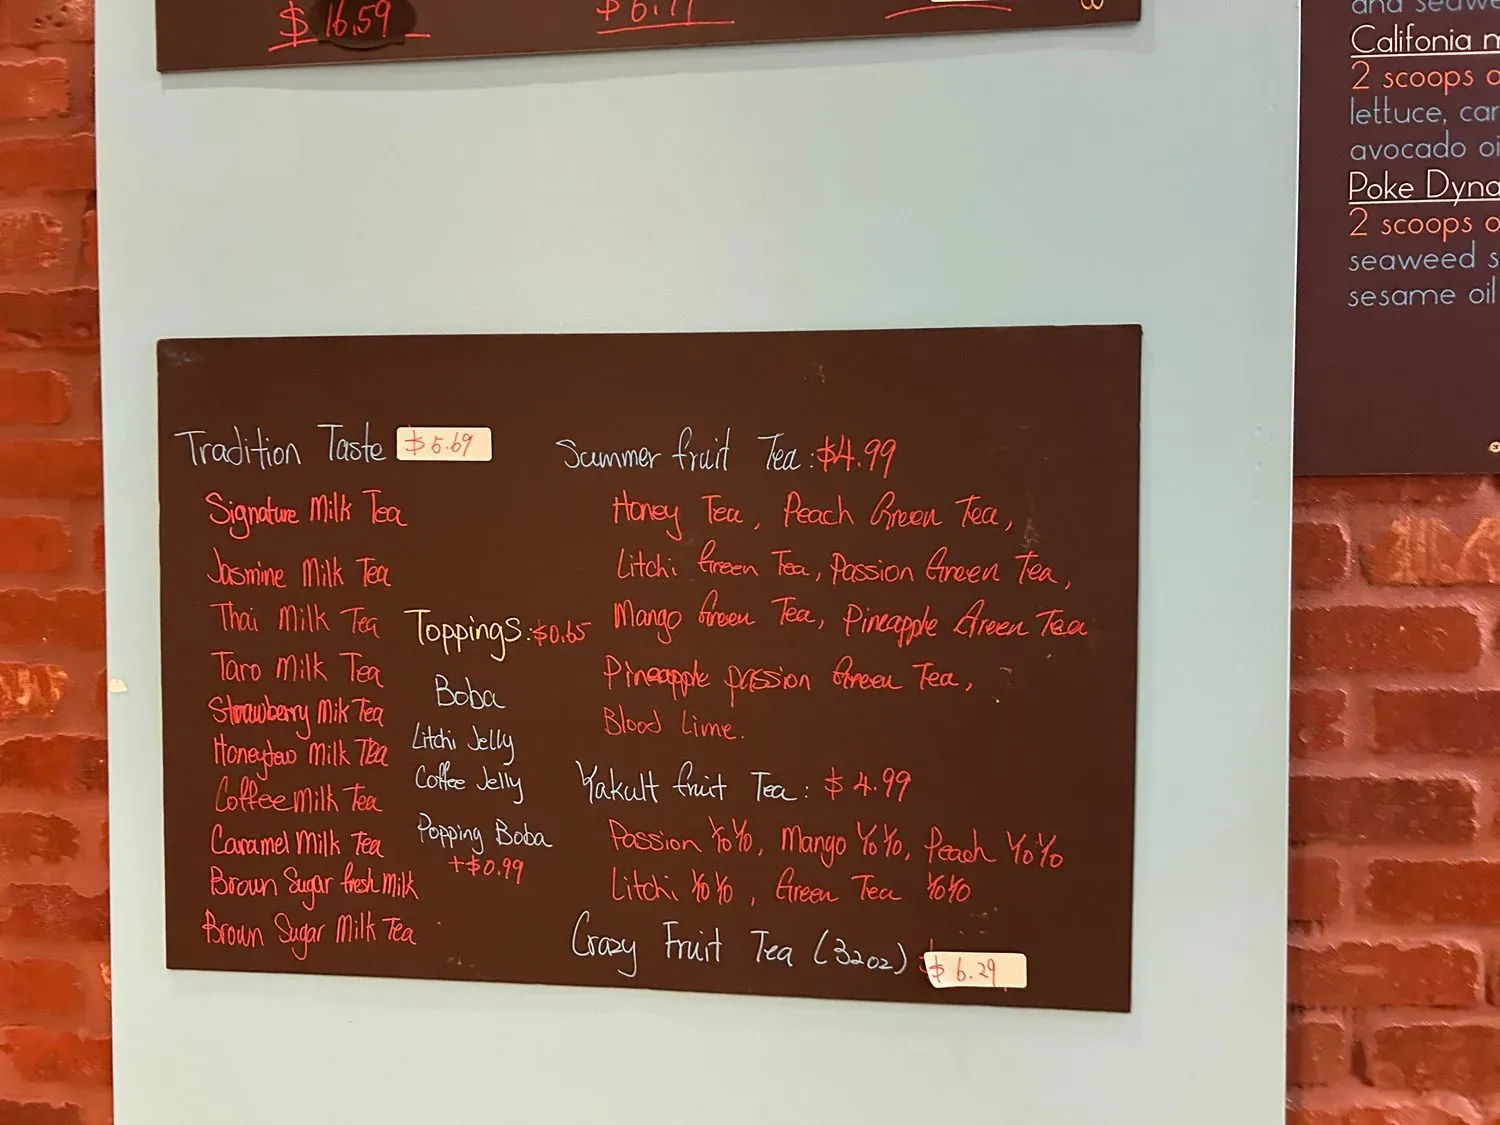 $16.59
Califonia
2 scoops
lettuce,
avocado
Poke
2 scoops
seaweed
sesame oil
Tradition Taste $5.69
Signature Milk Tea
Jasmine Milk Tea
Thai Milk Tea
Taro Milk Tea
Strawberry Mik Tea
Honeydew Milk Tea
Coffee Milk Tea
Caramel Milk Tea
Brown Sugar fresh Milk
Brown Sugar Milk Tea
Toppings: $0.65
Boba
Litchi Jelly
Coffee Jelly
Popping Boba
+$0.99
Summer fruit Tea: $4.99
Honey Tea, Peach Green Tea,
Litchi Green Tea, Passion Green Tea,
Mango Green Tea, Pineapple Green Tea
Pineapple passion Green Tea,
Blood Lime.
Yakult fruit Tea: $4.99
Passion YoYo, Mango YoYo, Peach YoYo
Litchi YoYo, Green Tea YoYo
Crazy Fruit Tea (32oz) $6.29